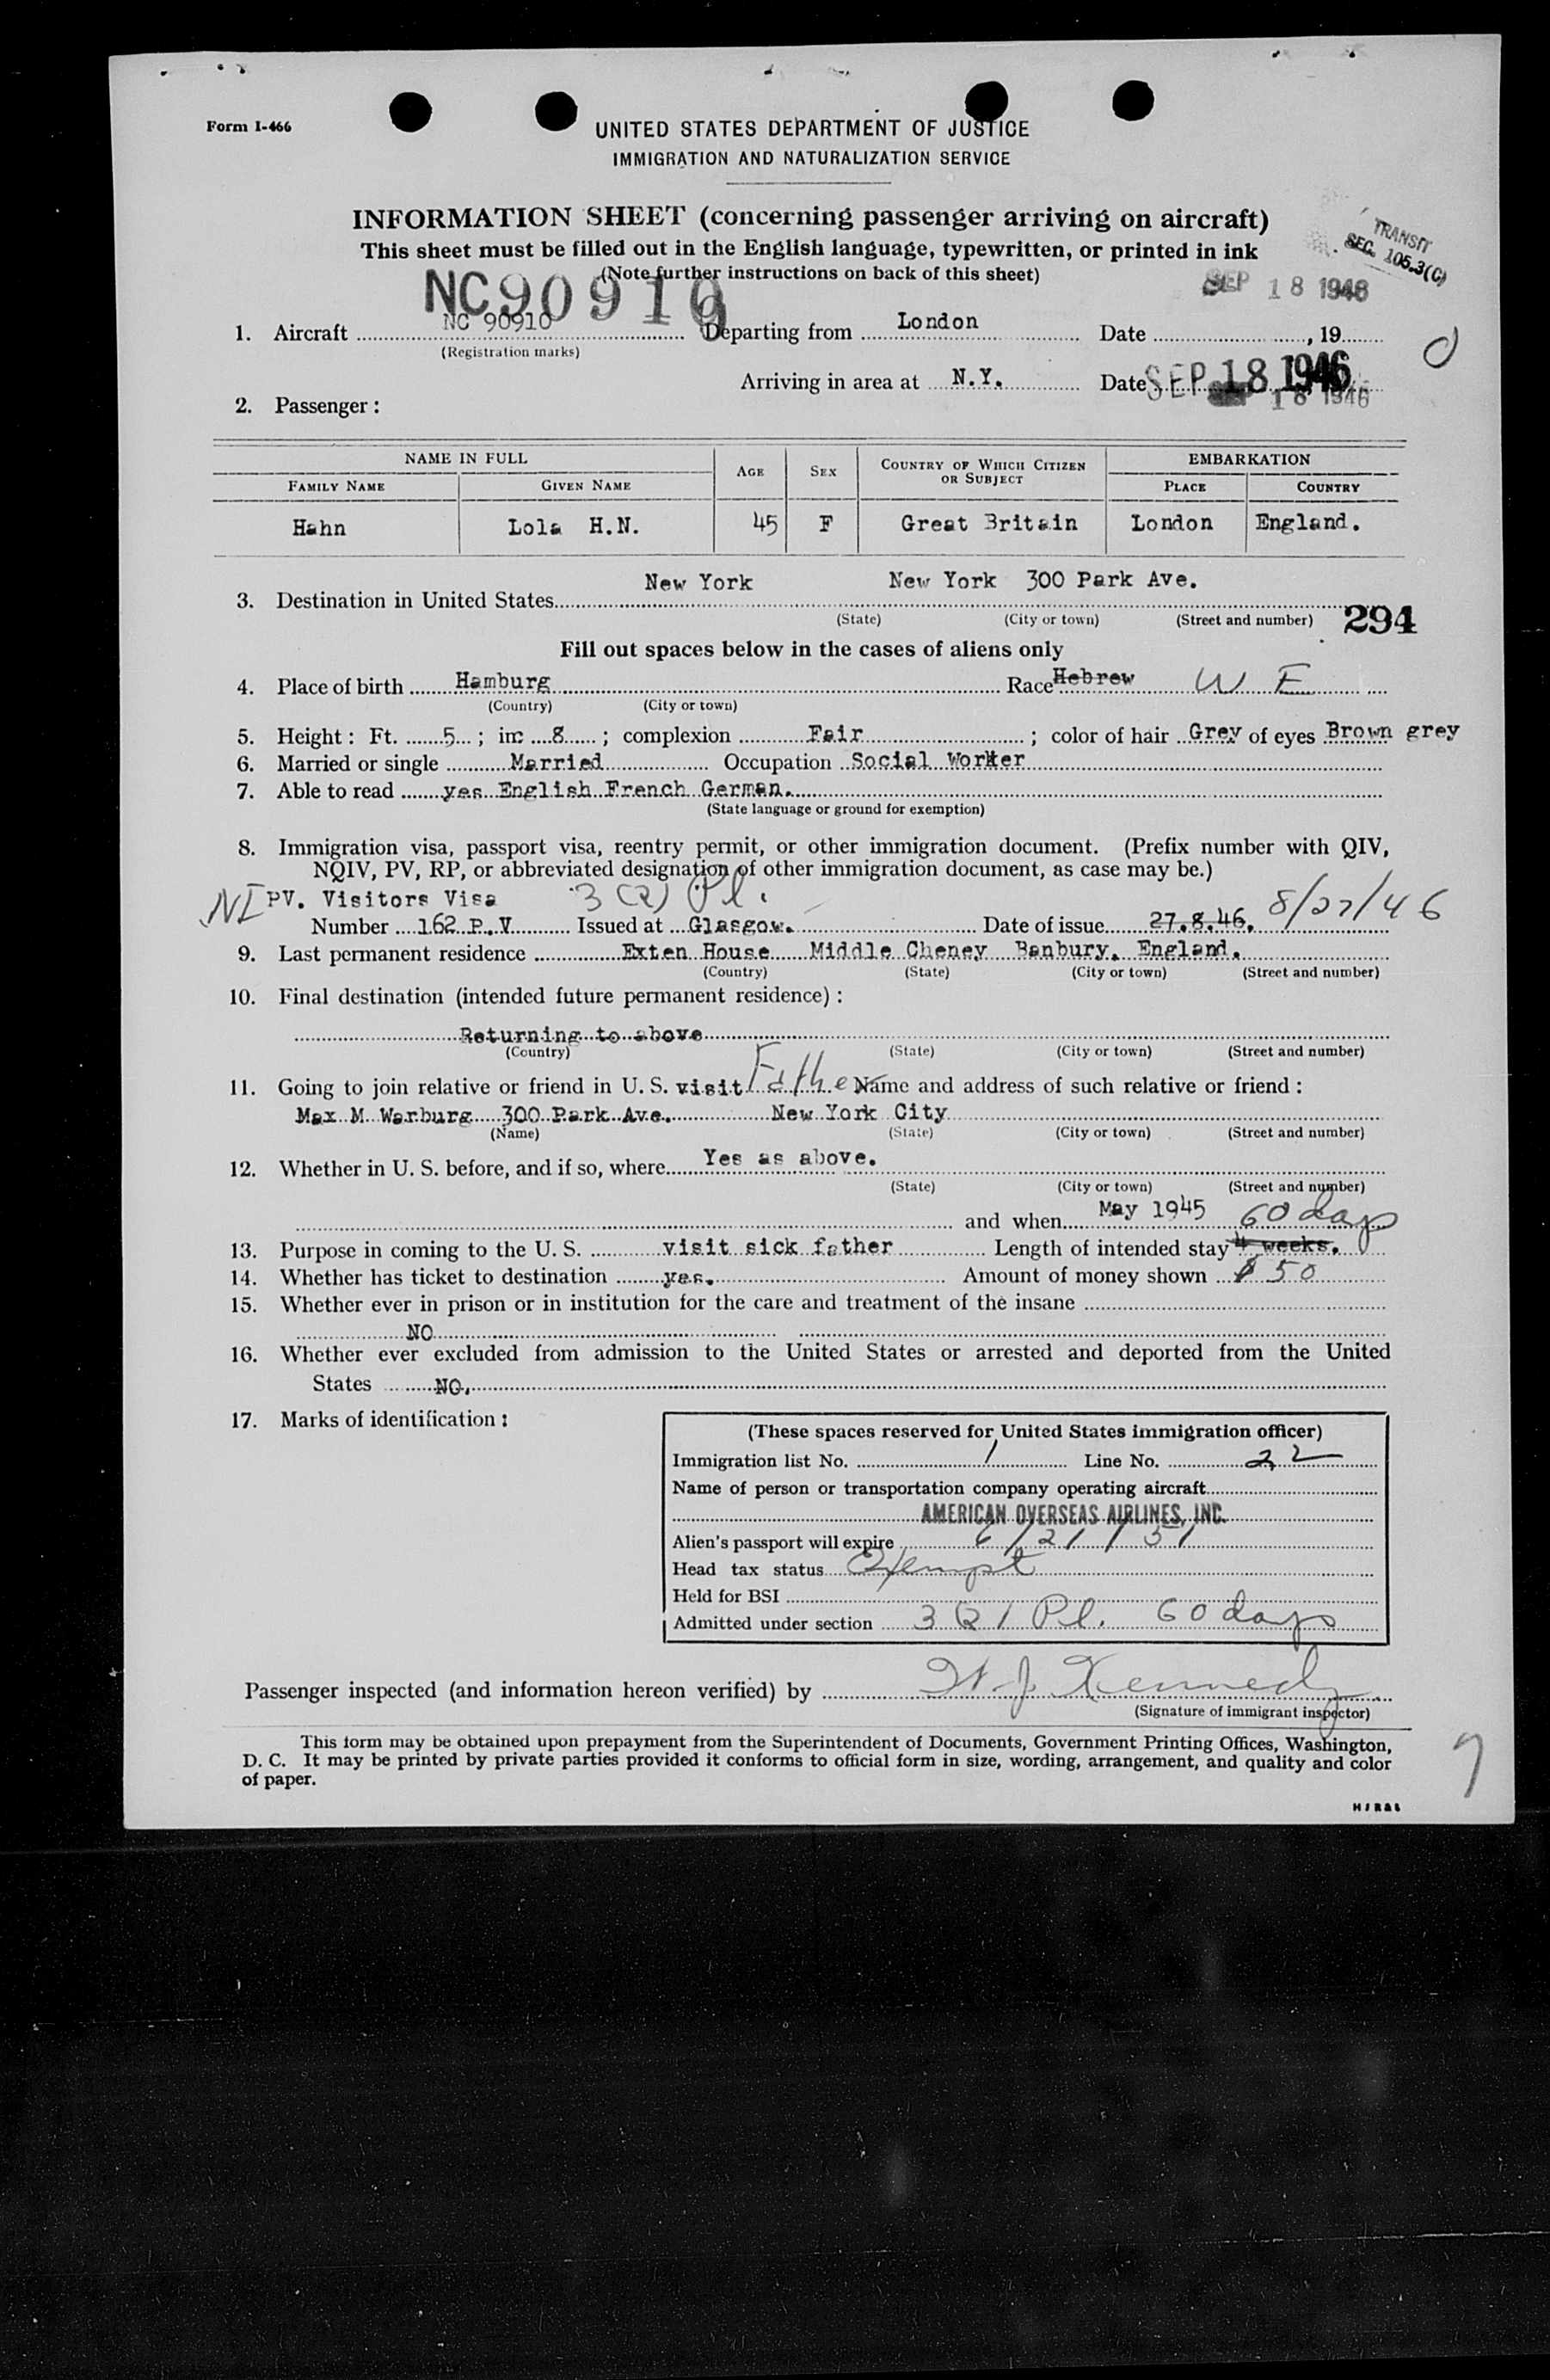 Form I-466
UNITED STATES DEPARTMENT OF JUSTICE
IMMIGRATION AND NATURALIZATION SERVICE
INFORMATION SHEET (concerning passenger arriving on aircraft)
This sheet must be filled out in the English language, typewritten, or printed in ink
(Note further instructions on back of this sheet)
TRANSIT
SEC. 105.3(C)
NC90910
SEP 18 1946
1. Aircraft NC 90910 Departing from London Date , 19
(Registration marks)
Arriving in area at N.Y. Date SEP 18 1946
18 1946
2. Passenger:
NAME IN FULL AGE SEX COUNTRY OF WHICH CITIZEN OR SUBJECT EMBARKATION
FAMILY NAME GIVEN NAME PLACE COUNTRY
Hahn Lola H.N. 45 F Great Britain London England.
3. Destination in United States New York New York 300 Park Ave.
(State) (City or town) (Street and number) 294
Fill out spaces below in the cases of aliens only
4. Place of birth Hamburg Race Hebrew W E
(Country) (City or town)
5. Height: Ft. 5 ; in: 8 ; complexion Fair ; color of hair Grey of eyes Brown grey
6. Married or single Married Occupation Social Worker
7. Able to read yes English French German.
(State language or ground for exemption)
8. Immigration visa, passport visa, reentry permit, or other immigration document. (Prefix number with QIV,
NQIV, PV, RP, or abbreviated designation of other immigration document, as case may be.)
NI PV. Visitors Visa 3(2) Pl.
Number 162 P.V. Issued at Glasgow. Date of issue 27.8.46. 8/27/46
9. Last permanent residence Exten House Middle Cheney Banbury. England.
(Country) (State) (City or town) (Street and number)
10. Final destination (intended future permanent residence):
Returning to above
(Country) (State) (City or town) (Street and number)
11. Going to join relative or friend in U. S. visit Father Name and address of such relative or friend:
Max M. Warburg 300 Park Ave. New York City
(Name) (State) (City or town) (Street and number)
12. Whether in U. S. before, and if so, where Yes as above.
(State) (City or town) (Street and number)
and when May 1945 60 days
13. Purpose in coming to the U. S. visit sick father Length of intended stay 4 weeks.
14. Whether has ticket to destination yes. Amount of money shown $50
15. Whether ever in prison or in institution for the care and treatment of the insane
NO
16. Whether ever excluded from admission to the United States or arrested and deported from the United
States NO.
17. Marks of identification:
(These spaces reserved for United States immigration officer)
Immigration list No. 1 Line No. 22
Name of person or transportation company operating aircraft
AMERICAN OVERSEAS AIRLINES, INC.
Alien's passport will expire 6/21/51
Head tax status Exempt
Held for BSI
Admitted under section 3(2) Pl. 60 days
Passenger inspected (and information hereon verified) by W. J. Kennedy
(Signature of immigrant inspector)
This form may be obtained upon prepayment from the Superintendent of Documents, Government Printing Offices, Washington,
D. C. It may be printed by private parties provided it conforms to official form in size, wording, arrangement, and quality and color
of paper.
9